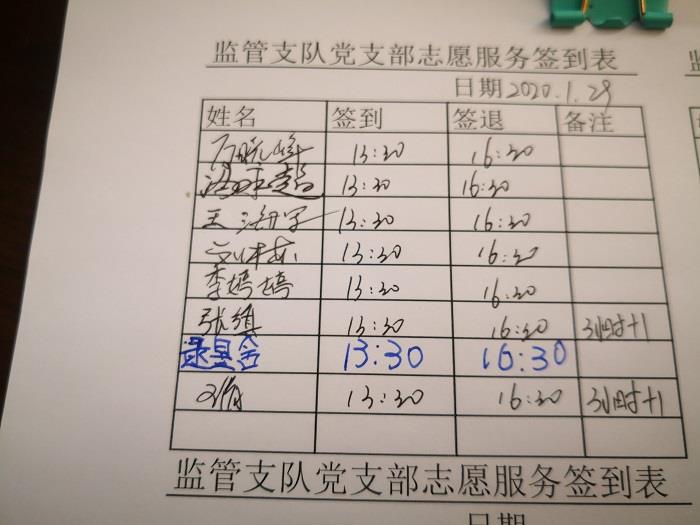 监管支队党支部志愿服务签到表
日期2020.1.29
姓名 签到 签退 备注
13:30 16:30
13:30 16:30
王海宇 13:30 16:30
13:30 16:30
李婷婷 13:30 16:30
张镇 13:30 16:30 3小时+1
13:30 16:30
13:30 16:30 3小时+1
监管支队党支部志愿服务签到表
日期